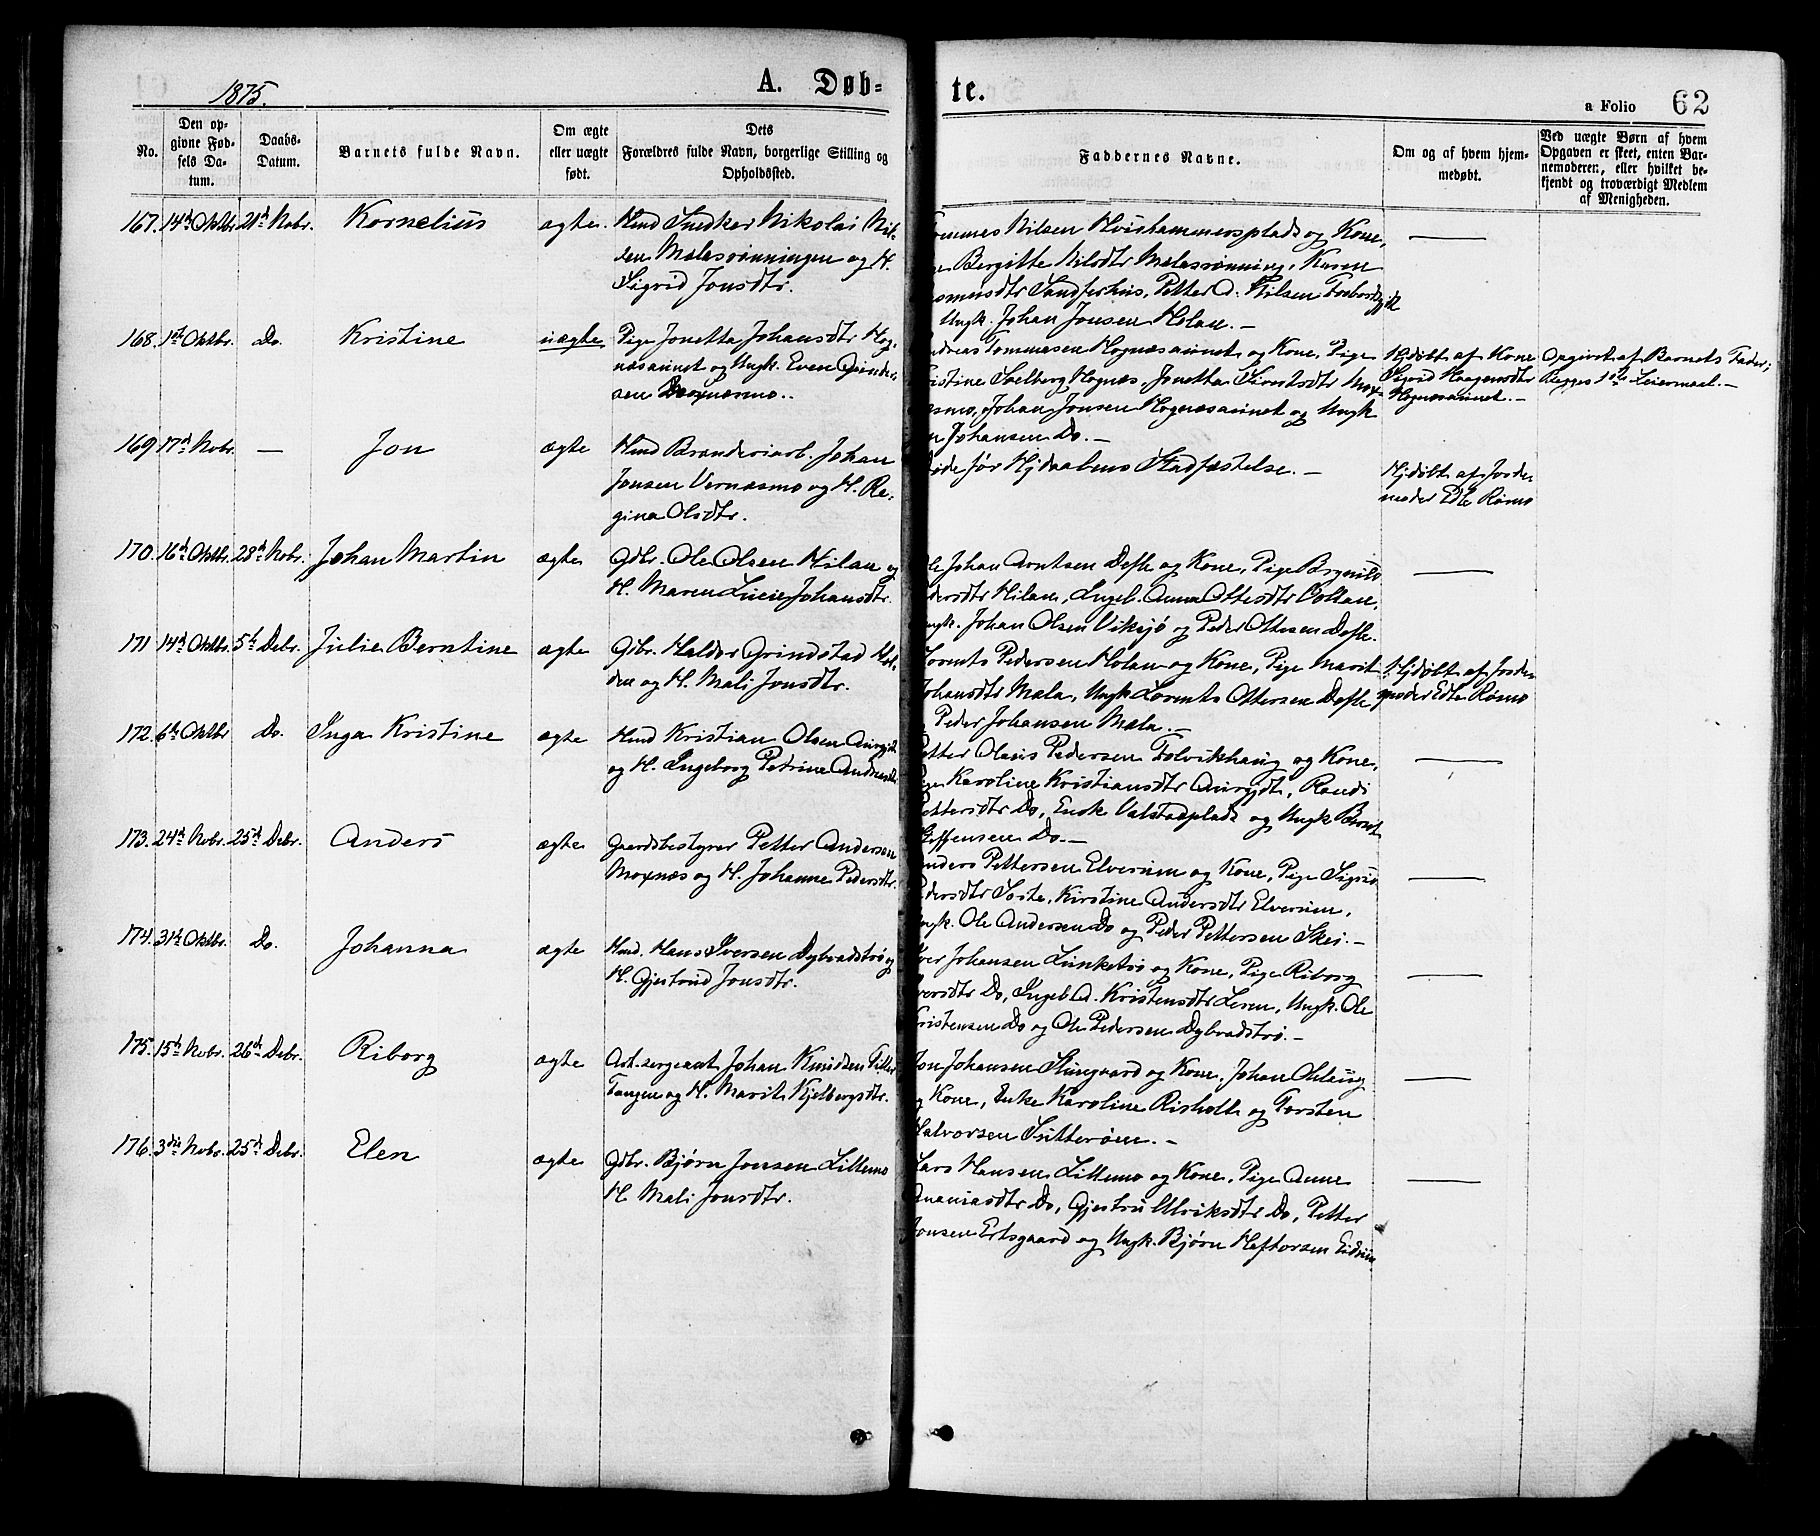 1875.
A. Døb-
te.
a Folio 62
No.
Den op-
givne Fød-
sels Da-
tum.
Daabs-
Datum.
Barnets fulde Navn.
Om ægte
eller uægte
født.
Dets
Forældres fulde Navn, borgerlige Stilling og
Opholdssted.
Faddernes Navne.
Om og af hvem hjem-
medøbt.
Ved uægte Børn af hvem
Opgaven er skeet, enten Bar-
nemoderen, eller hvilket be-
kjendt og troværdigt Medlem
af Menigheden.
167. 14d Oktbr. 21d Nobr. Kornelius ægte.
Hmd Snedker Nikolai Nil-
sen Malasrønningen og H.
Sigrid Jonsdtr.
Tommes Nilsen Kvishammersplads og Kone,
Bergitte Nilsdtr Malasrønning, Karen
Sandferhus, Petter A. Nilsen
Ungk. Johan Jonsen Holan. —
168. 1st Oktbr. Do. Kristine uægte
Pige Jonetta Johansdtr Hog-
næsaunet og Ungk. Even
sen Moxnæsmo..
Tommesen Hognæsaunet og Kone, Pige
Salberg Hognæs, Jonetta Sivertsdtr Mox-
næsmo, Johan Jonsen Hognæsaunet og Ungk
Johansen Do. —
Hjdøbt af Kone
Sigrid Haagensdtr
Hognæsaunet. —
Opgivet af Barnets Fader;
Begges 1ste Leiermaal. —
169 17d Nobr. — Jon ægte
Hmd Brænderiarb. Johan
Jonsen Vernæsmo og H. Re-
gina Olsdtr.
Døde før Hjdaabens Stadfæstelse. —
Hjdøbt af Jorde-
moder Edle Rømo
170. 16d Oktbr. 28d Nobr. Johan Martin ægte
Gdbr. Ole Olsen Hilan og
H. Maren Lucie Johansdtr.
Ole Johan Arntsen Defle og Kone, Pige Brynild
Pedersdtr Hilan, Ingeb. Anna Ottesdtr Voltan,
Ungk. Johan Olsen Viksjø og Peder Ottesen Defle.
171 14d Oktbr. 5te Debr. Julie Berntine ægte
Gdbr. Haldor Grindstad Hol-
den og H. Mali Jonsdtr.
Lornts Pedersen Holan og Kone, Pige Marit
Johansdtr Mæla, Ungk Lornts Ottersen Defle,
Peder Johansen Mæla. —
Hjdøbt af Jorde-
moder Edle Rømo
172. 6te Oktbr Do. Inga Kristine ægte
Hmd Kristian Olsen
og H. Ingeborg Petrine
Petter Olaus Pedersen Folvikhaug og Kone,
Pige Karoline Kristiansdtr, Randi
Pettersdtr Do, Enke Valstadplads og Ungk Bernt
Steffensen Do. —
173. 24d Nobr. 25d Debr. Anders ægte
Gaardsbestyrer Petter Andersen
Moxnæs og H. Johanne Pedersdtr.
Anders Pettersen Elverum og Kone, Pige Sigrid
Pedersdtr Soste, Kirstine Andersdtr Elverum,
Ungk. Ole Andersen Do og Peder Pettersen Skei. —
174. 31te Oktbr. Do. Johanna ægte
Hmd. Hans Iversen Dybvadstrø og
H. Gjertrud Jonsdtr.
Iver Johansen Lunketrø og Kone, Pige Riborg
Iversdtr Do, Ingeb. A. Kristensdtr Leren, Ungk. Ole
Kristensen Do og Ole Pedersen Dybvadstrø. —
175. 15de Nobr. 26d Debr. Riborg ægte
Art. sergeant Johan Knudsen
Tangen og H. Marit Kjelbergsdtr.
Jon Johansen Stuegaard og Kone, Johan
og Kone, Enke Karoline Risholt og Torsten
Halvorsen Sutterøen. —
176. 3die Nobr. 25d Debr. Elen ægte
Gdbr. Bjørn Jonsen Lillemo
H. Mali Jonsdtr.
Lars Hansen Lillemo og Kone, Pige Anne
Ananiasdtr Do, Gjertru Ulriksdtr Do, Petter
Jonsen Ertsgaard og Ungk. Bjørn Heftorsen